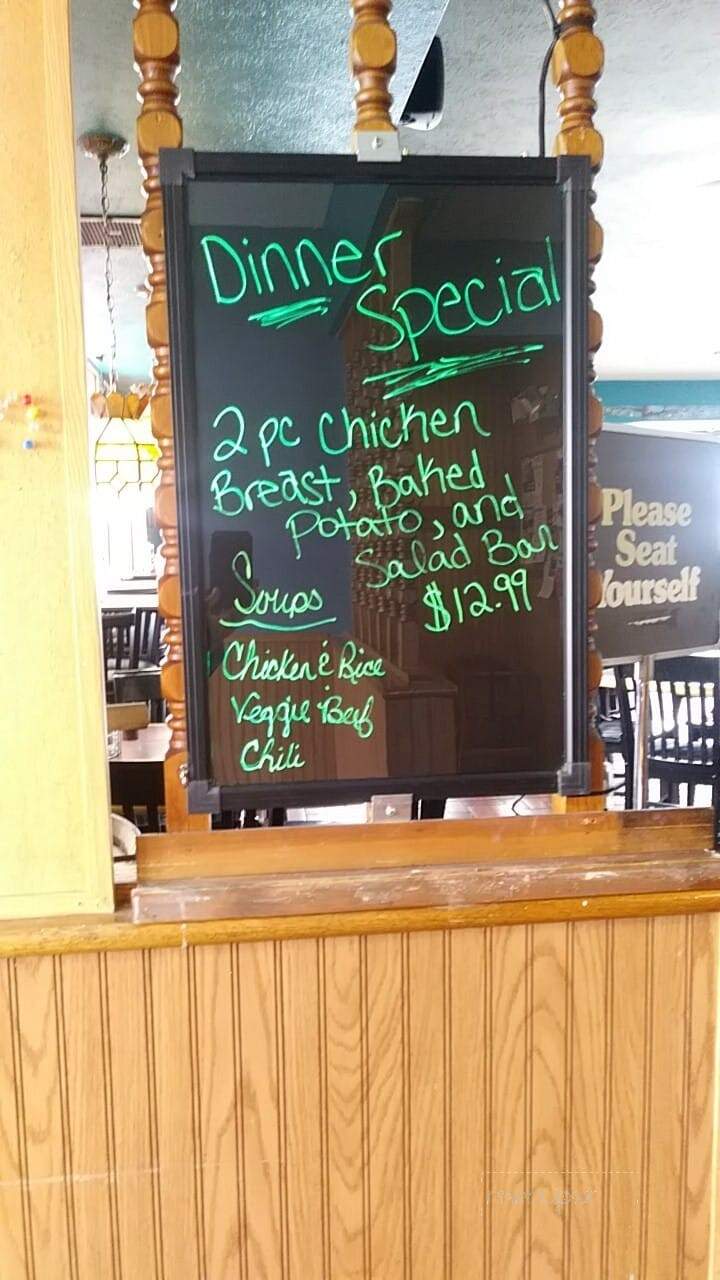 Dinner
Special
2 pc Chicken
Breast, Baked
Potato, and
Salad Bar
$12.99
Soups
Chicken & Rice
Veggie Beef
Chili
Please
Seat
Yourself